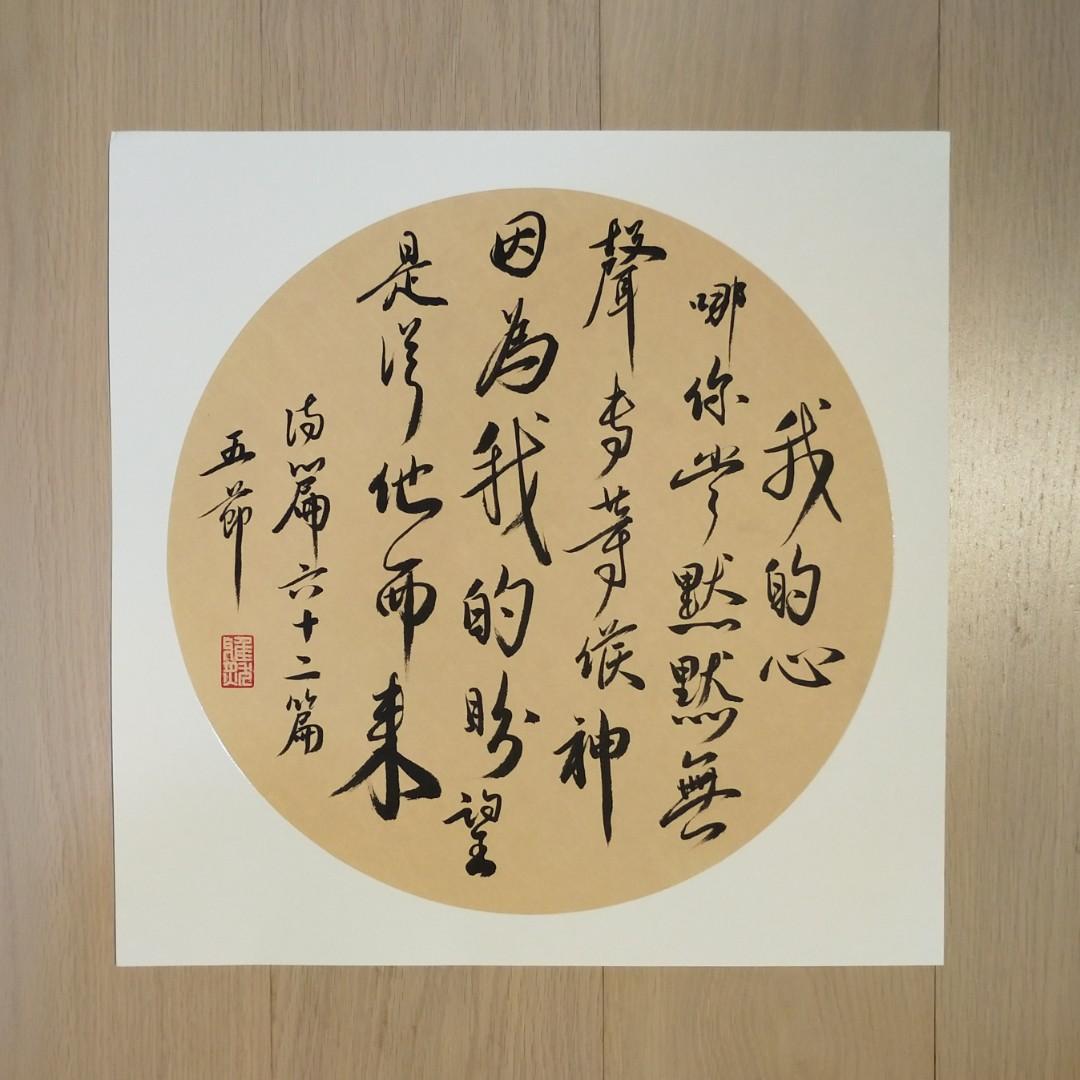 我的心
哪你當默默無
聲專等候神
因為我的盼望
是從他而來
詩篇六十二篇
五節